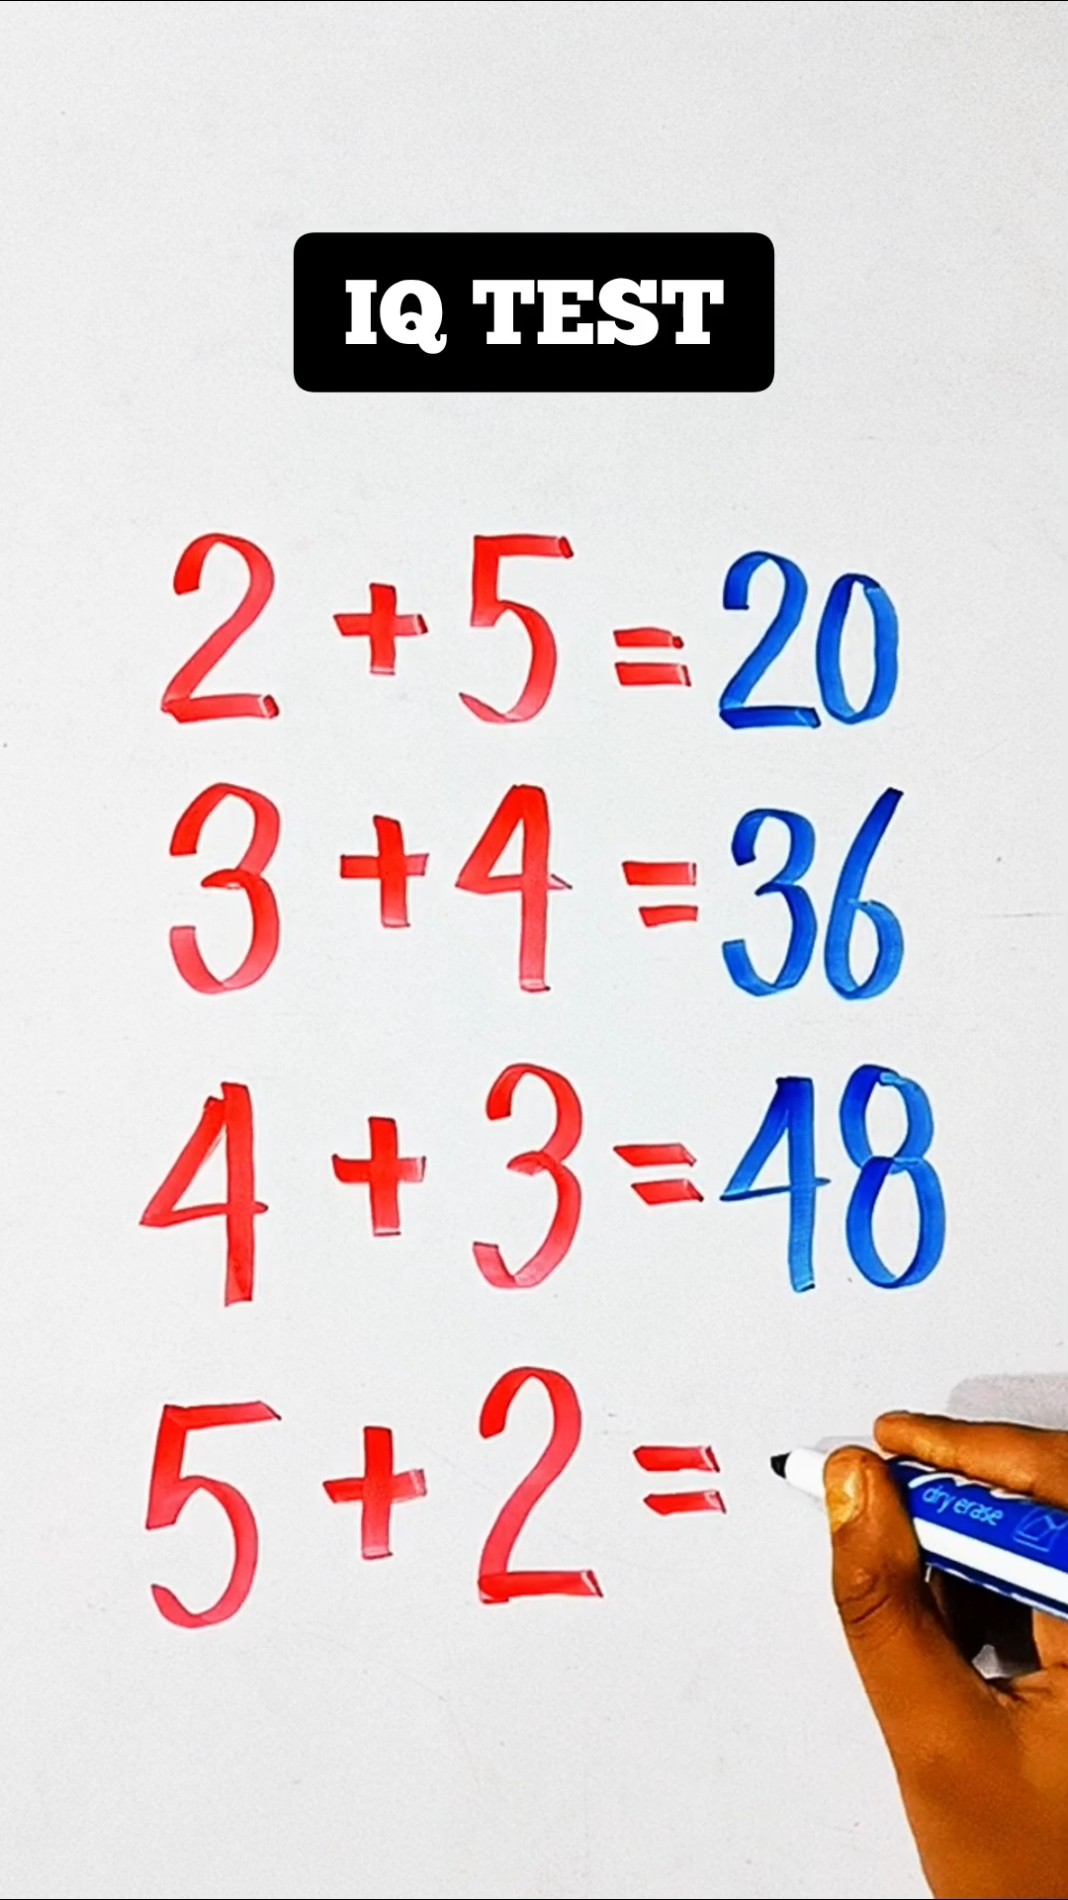 IQ TEST
2 + 5 = 20
3 + 4 = 36
4 + 3 = 48
5 + 2 =
dry erase